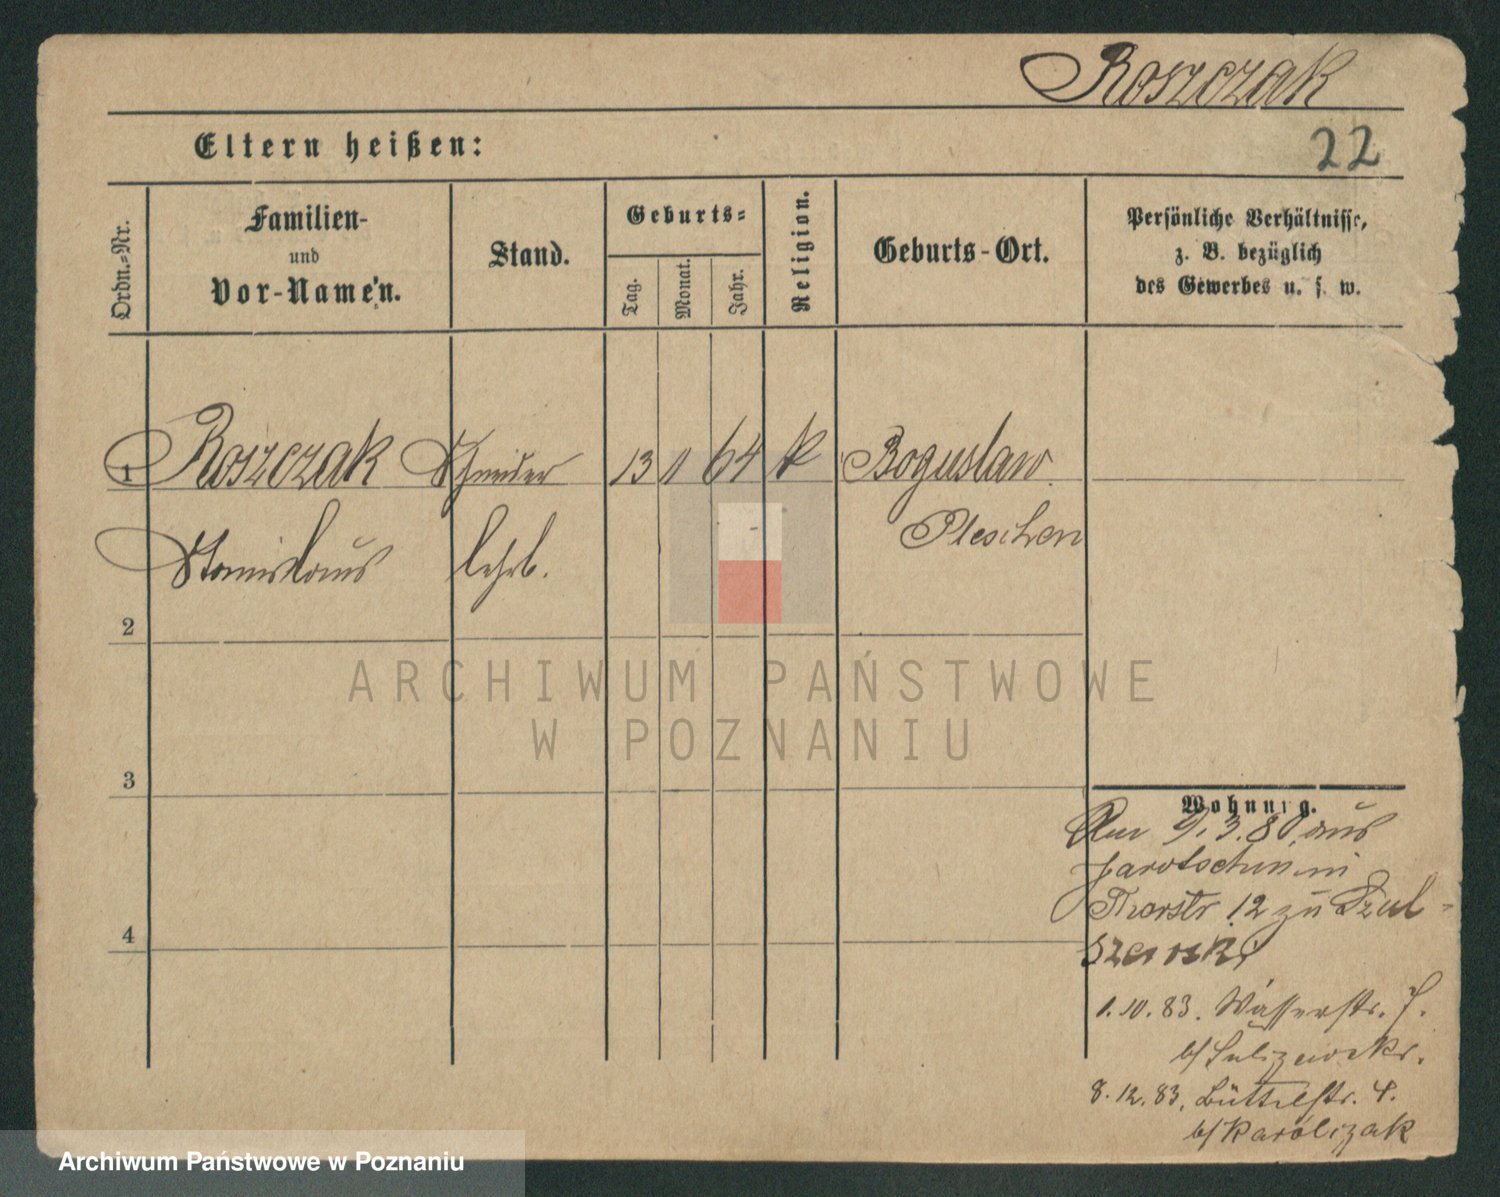 Roszczak
Eltern heißen:
22
Ordn.-Nr.
Familien-
und
Vor-Namen.
Stand.
Geburts-
Tag.
Monat.
Jahr.
Religion.
Geburts-Ort.
Persönliche Verhältnisse,
z. B. bezüglich
des Gewerbes u. s. w.
1 Roszczak Schneider 13 11 64 k Boguslaw
Stanislaus lehrl. Pleschen
2
ARCHIWUM PAŃSTWOWE
W POZNANIU
3
Wohnung.
Am 9.3.80 aus
Jarotschin in
Thorstr. 12 zu Szul-
4
szewski
1.10.83. Wasserstr. 7.
b/ Sulizewski.
8.12.83. Büttelstr. 4.
b/ Karolizak
Archiwum Państwowe w Poznaniu